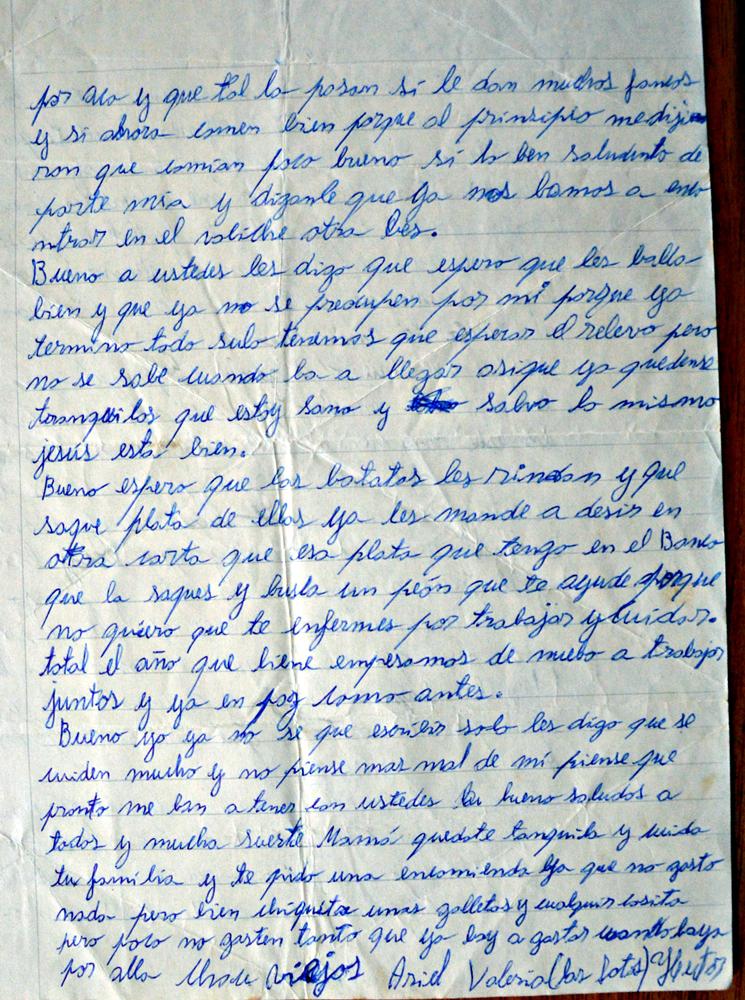 por aca y que tal la pasan si le dan muchos francos
y si ahora comen bien porque al principio me dije
ron que comian poco bueno si lo ben saludenlo de
parte mia y diganle que ya nos bamos a enco
ntrar en el boliche otra bes.
Bueno a ustedes les digo que espero que les balla
bien y que ya no se preocupen por mi porque ya
termino todo solo tenemos que esperar el relevo pero
no se sabe cuando ba a llegar asique ya quedense
tranquilos que estoy sano y salvo lo mismo
jesús esta bien.
Bueno espero que las batatas les rindan y que
saque plata de ellas ya les mande a desir en
otra carta que esa plata que tengo en el Banco
que la saques y busca un peón que te ayude porque
no quiero que te enfermes por trabajar y cuidar.
total el año que biene empesamos de nuebo a trabajar
juntos y ya en paz como antes.
Bueno yo ya no se que escribir solo les digo que se
cuiden mucho y no piense mas mal de mi piense que
pronto me ban a tener con ustedes bueno saludos a
todos y mucha suerte Mamá quedate tanquila y cuida
tu familia y te pido una encomienda ya que no gasto
nada pero bien chiquita unas galletas y cualquier cosita
pero poco no gasten tanto que ya boy a gastar cuando baya
por alla Chau viejos Ariel Valeria (las fotos) Hector